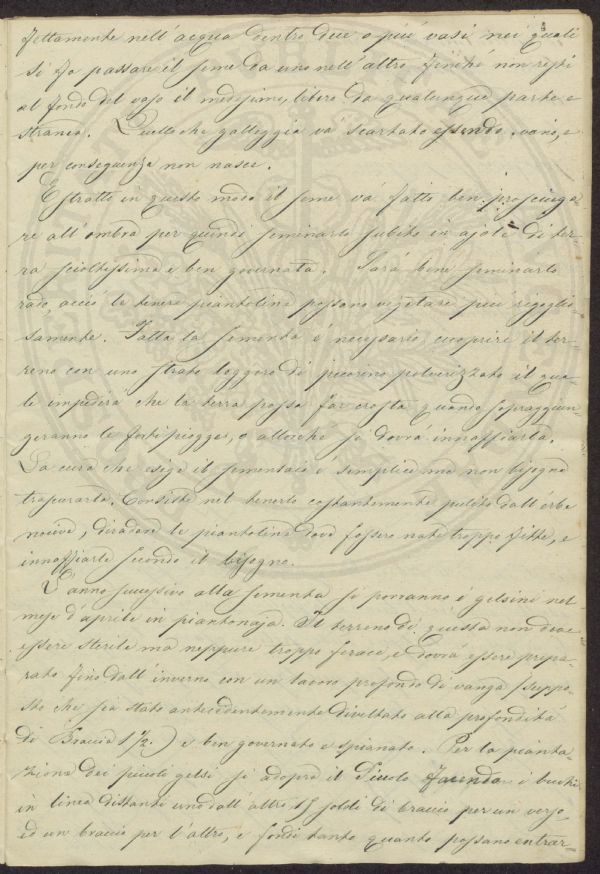 fettamente nell'acqua dentro due o più vasi nei quali
si fa passare il seme da uno nell'altro finché non resti
al fondo del vaso il medesimo, libero da qualunque parte e=
stranea. Quello che galleggia và scartato essendo vano, e
per conseguenza non nasce.
Estratto in questo modo il seme và fatto ben prosciuga=
re all'ombra per quindi seminarlo subito in ajole di ter=
ra scioltissima e ben governata. Sarà bene seminarlo
rado, acciò le tenere piantoline possano vegetare più rigoglio=
samente. Fatta la sementa è necessario cuoprire il ter=
reno con uno strato leggero di pecorino polverizzato il qua=
le impedirà che la terra possa far crosta quando sopraggiun=
geranno le forti piogge, o allorché si dovrà innaffiarla.
La cura che esige il sementaio è semplice ma non bisogna
trascurarla. Consiste nel tenerlo costantemente pulito dall'erbe
nocive, diradare le piantoline dove fossero nate troppo fitte, e
innaffiarle secondo il bisogno.
L'anno successivo alla sementa si porranno i gelsini nel
mese d'aprile in piantonaja. Il terreno di questa non deve
essere sterile ma neppure troppo ferace, e dovrà essere prepa=
rato fino dall'inverno con un lavoro profondo di vanga (suppo=
sto che sia stato antecedentemente diveltato alla profondità
di Braccia 1 1/2.) e ben governato e spianato. Per la pianta=
zione dei piccoli gelsi si adopera il Piccolo facendo i buchi
in linea distanti uno dall'altro 15 soldi di braccio per un verso,
ed un braccio per l'altro, e fondi tanto quanto possano entrar=